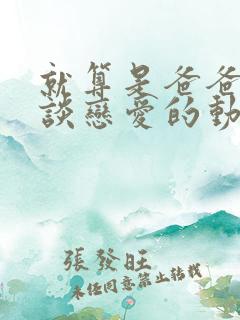 就算是爸爸
談戀愛的動
張發旺
未經同意禁止轉載